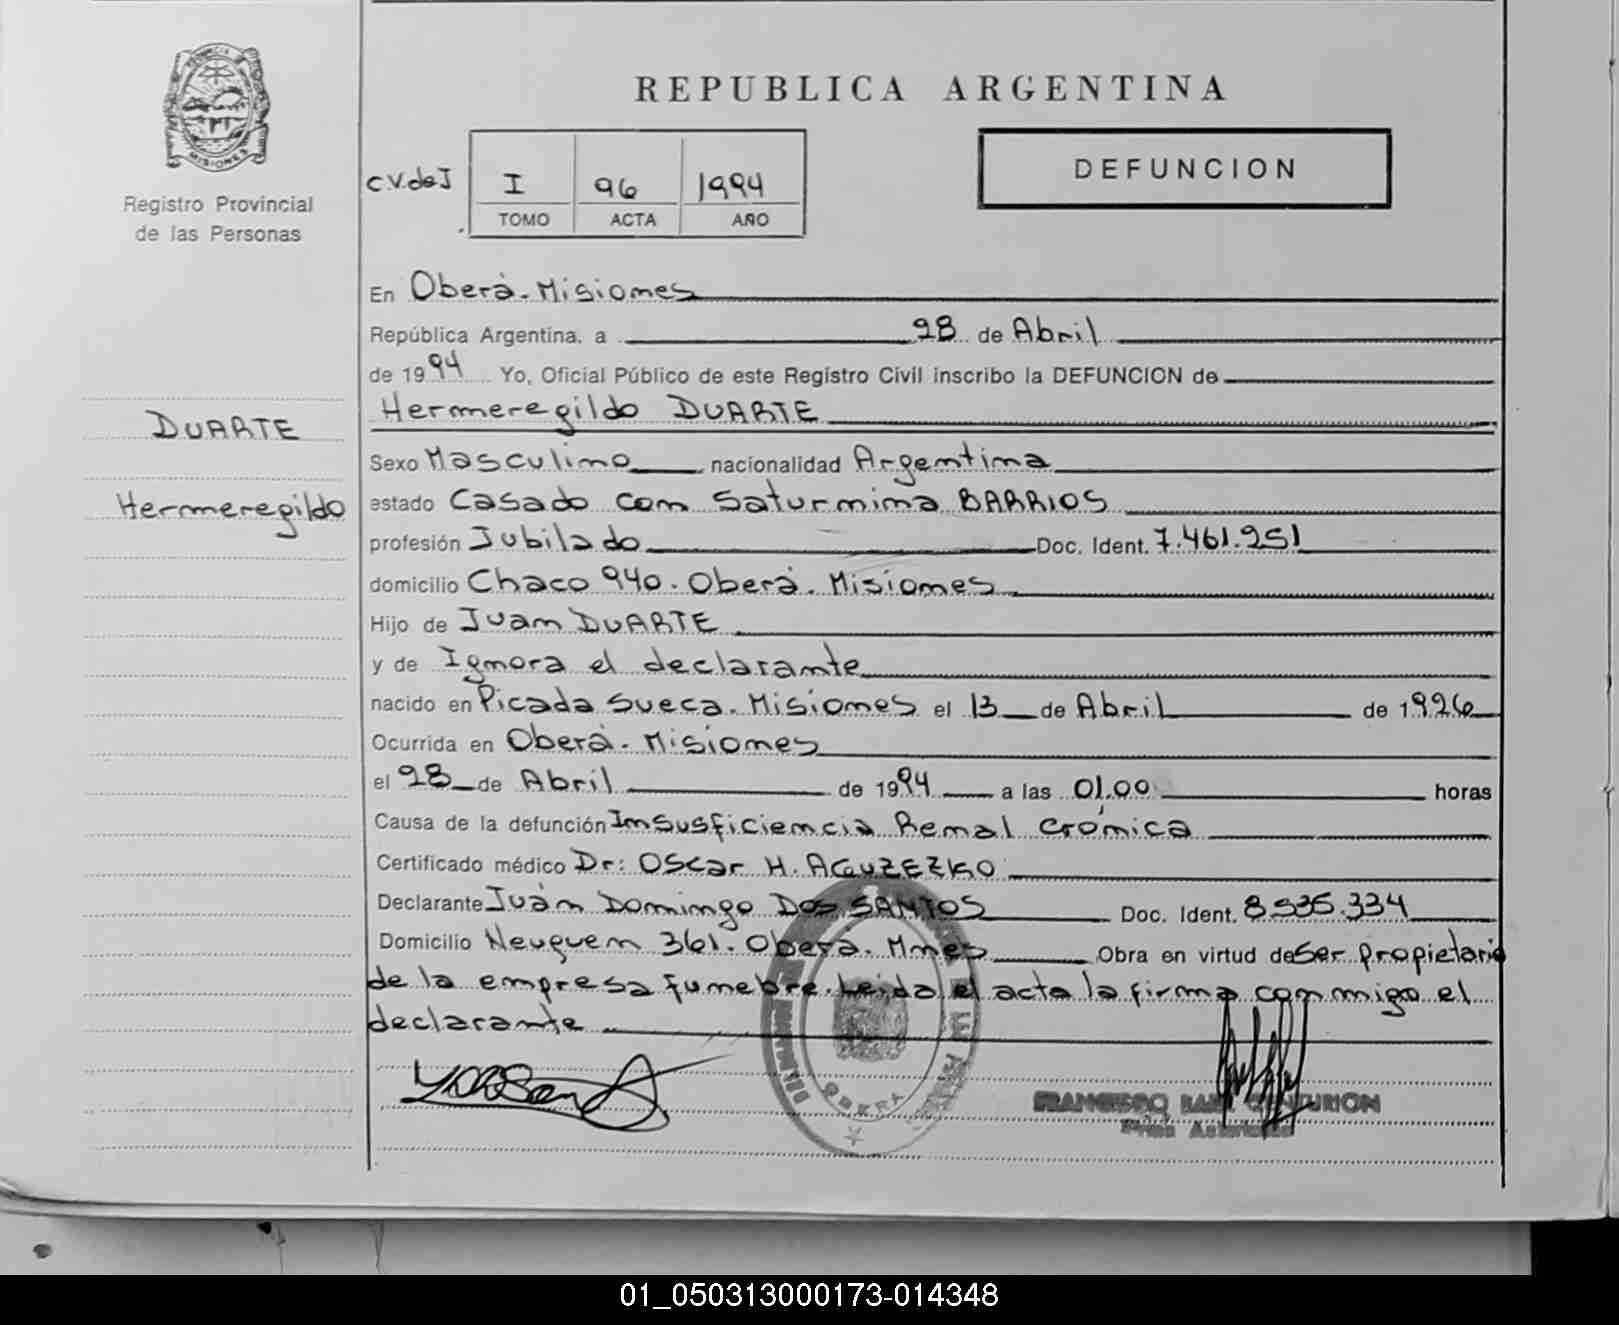 PROVINCIA DE
MISIONES
Registro Provincial
de las Personas
DUARTE
Hermeregildo
REPUBLICA ARGENTINA
C.V.deI
I 96 1994
TOMO ACTA AÑO
DEFUNCION
En Oberà. Misiones
República Argentina, a 28 de Abril
de 1994 Yo, Oficial Público de este Registro Civil inscribo la DEFUNCION de
Hermeregildo DUARTE
Sexo Masculino nacionalidad Argentina
estado Casado con Saturnina BARRIOS
profesión Jubilado Doc. Ident. 7.461.251
domicilio Chaco 940. Oberà. Misiones
Hijo de Juan DUARTE
y de Ignora el declarante
nacido en Picada Sueca. Misiones el 13 de Abril de 1926
Ocurrida en Oberà. Misiones
el 28 de Abril de 1994 a las 01,00 horas
Causa de la defunción Insusficiencia Renal crónica
Certificado médico Dr: Oscar H. AGUZEZKO
Declarante Juàn Domingo DOS SANTOS Doc. Ident. 8.535.334
Domicilio Neuquen 361. Oberà. Mnes Obra en virtud de Ser propietario
de la empresa funebre. Leida el acta la firma conmigo el
declarante
OBERA
CENTURION
01_050313000173-014348